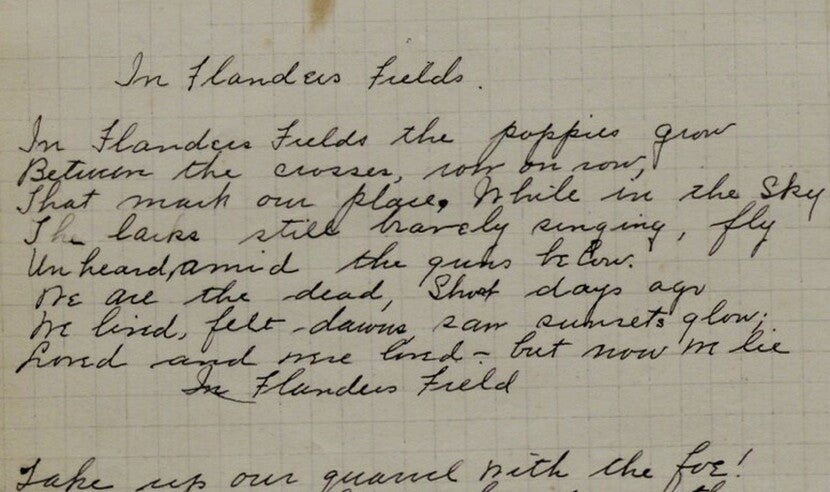 In Flanders Fields.
In Flanders Fields the poppies grow
Between the crosses, row on row,
That mark our place. While in the Sky
The larks still bravely singing, fly
Unheard, amid the guns below.
We are the dead, Short days ago
We lived, felt dawns, saw sunsets glow;
Loved and were loved - but now we lie
In Flanders Field
Take up our quarrel with the foe!